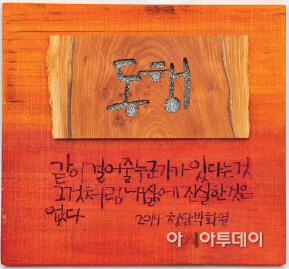 동행
같이 걸어줄 누군가가 있다는것
그것처럼 내삶에 진실한것은
없다
2014 청담박화영
아시아투데이